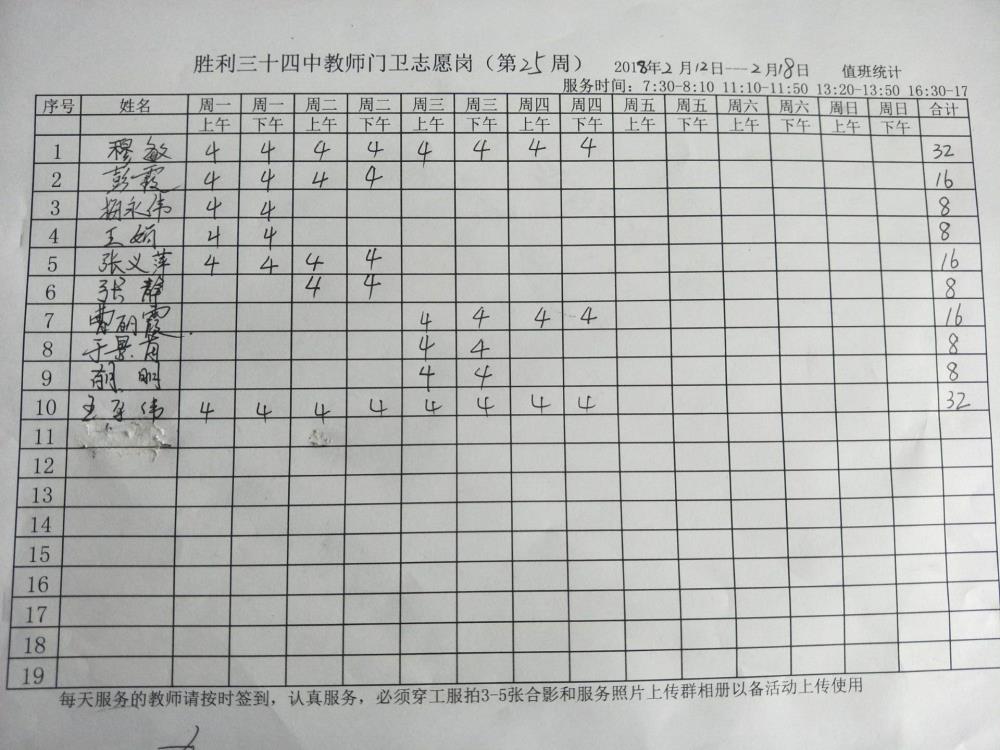 胜利三十四中教师门卫志愿岗（第25周） 2018年2月12日---2月18日 值班统计
服务时间：7:30-8:10 11:10-11:50 13:20-13:50 16:30-17
序号 姓名 周一 周一 周二 周二 周三 周三 周四 周四 周五 周五 周六 周六 周日 周日 合计
上午 下午 上午 下午 上午 下午 上午 下午 上午 下午 上午 下午 上午 下午
1 穆敏 4 4 4 4 4 4 4 4 32
2 彭霞 4 4 4 4 16
3 杨永伟 4 4 8
4 王娟 4 4 8
5 张义萍 4 4 4 4 16
6 张静 4 4 8
7 曹明霞 4 4 4 4 16
8 于景 4 4 8
9 明 4 4 8
10 王 伟 4 4 4 4 4 4 4 4 32
11
12
13
14
15
16
17
18
19
每天服务的教师请按时签到，认真服务，必须穿工服拍3-5张合影和服务照片上传群相册以备活动上传使用